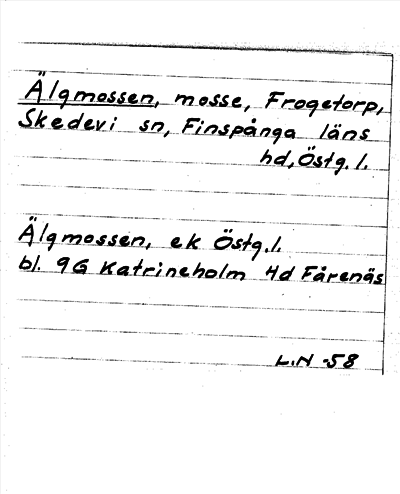 Älgmossen, mosse, Frogetorp,
Skedevi sn, Finspånga läns
hd, Östg. l.
Älgmossen, ek Östg. l.
bl. 9G Katrineholm 4d Fårenäs
L.N -58